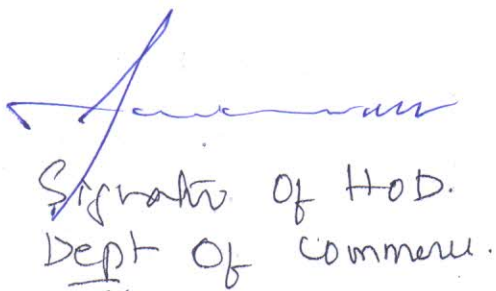 Signature Of HOD.
Dept Of Commerce.